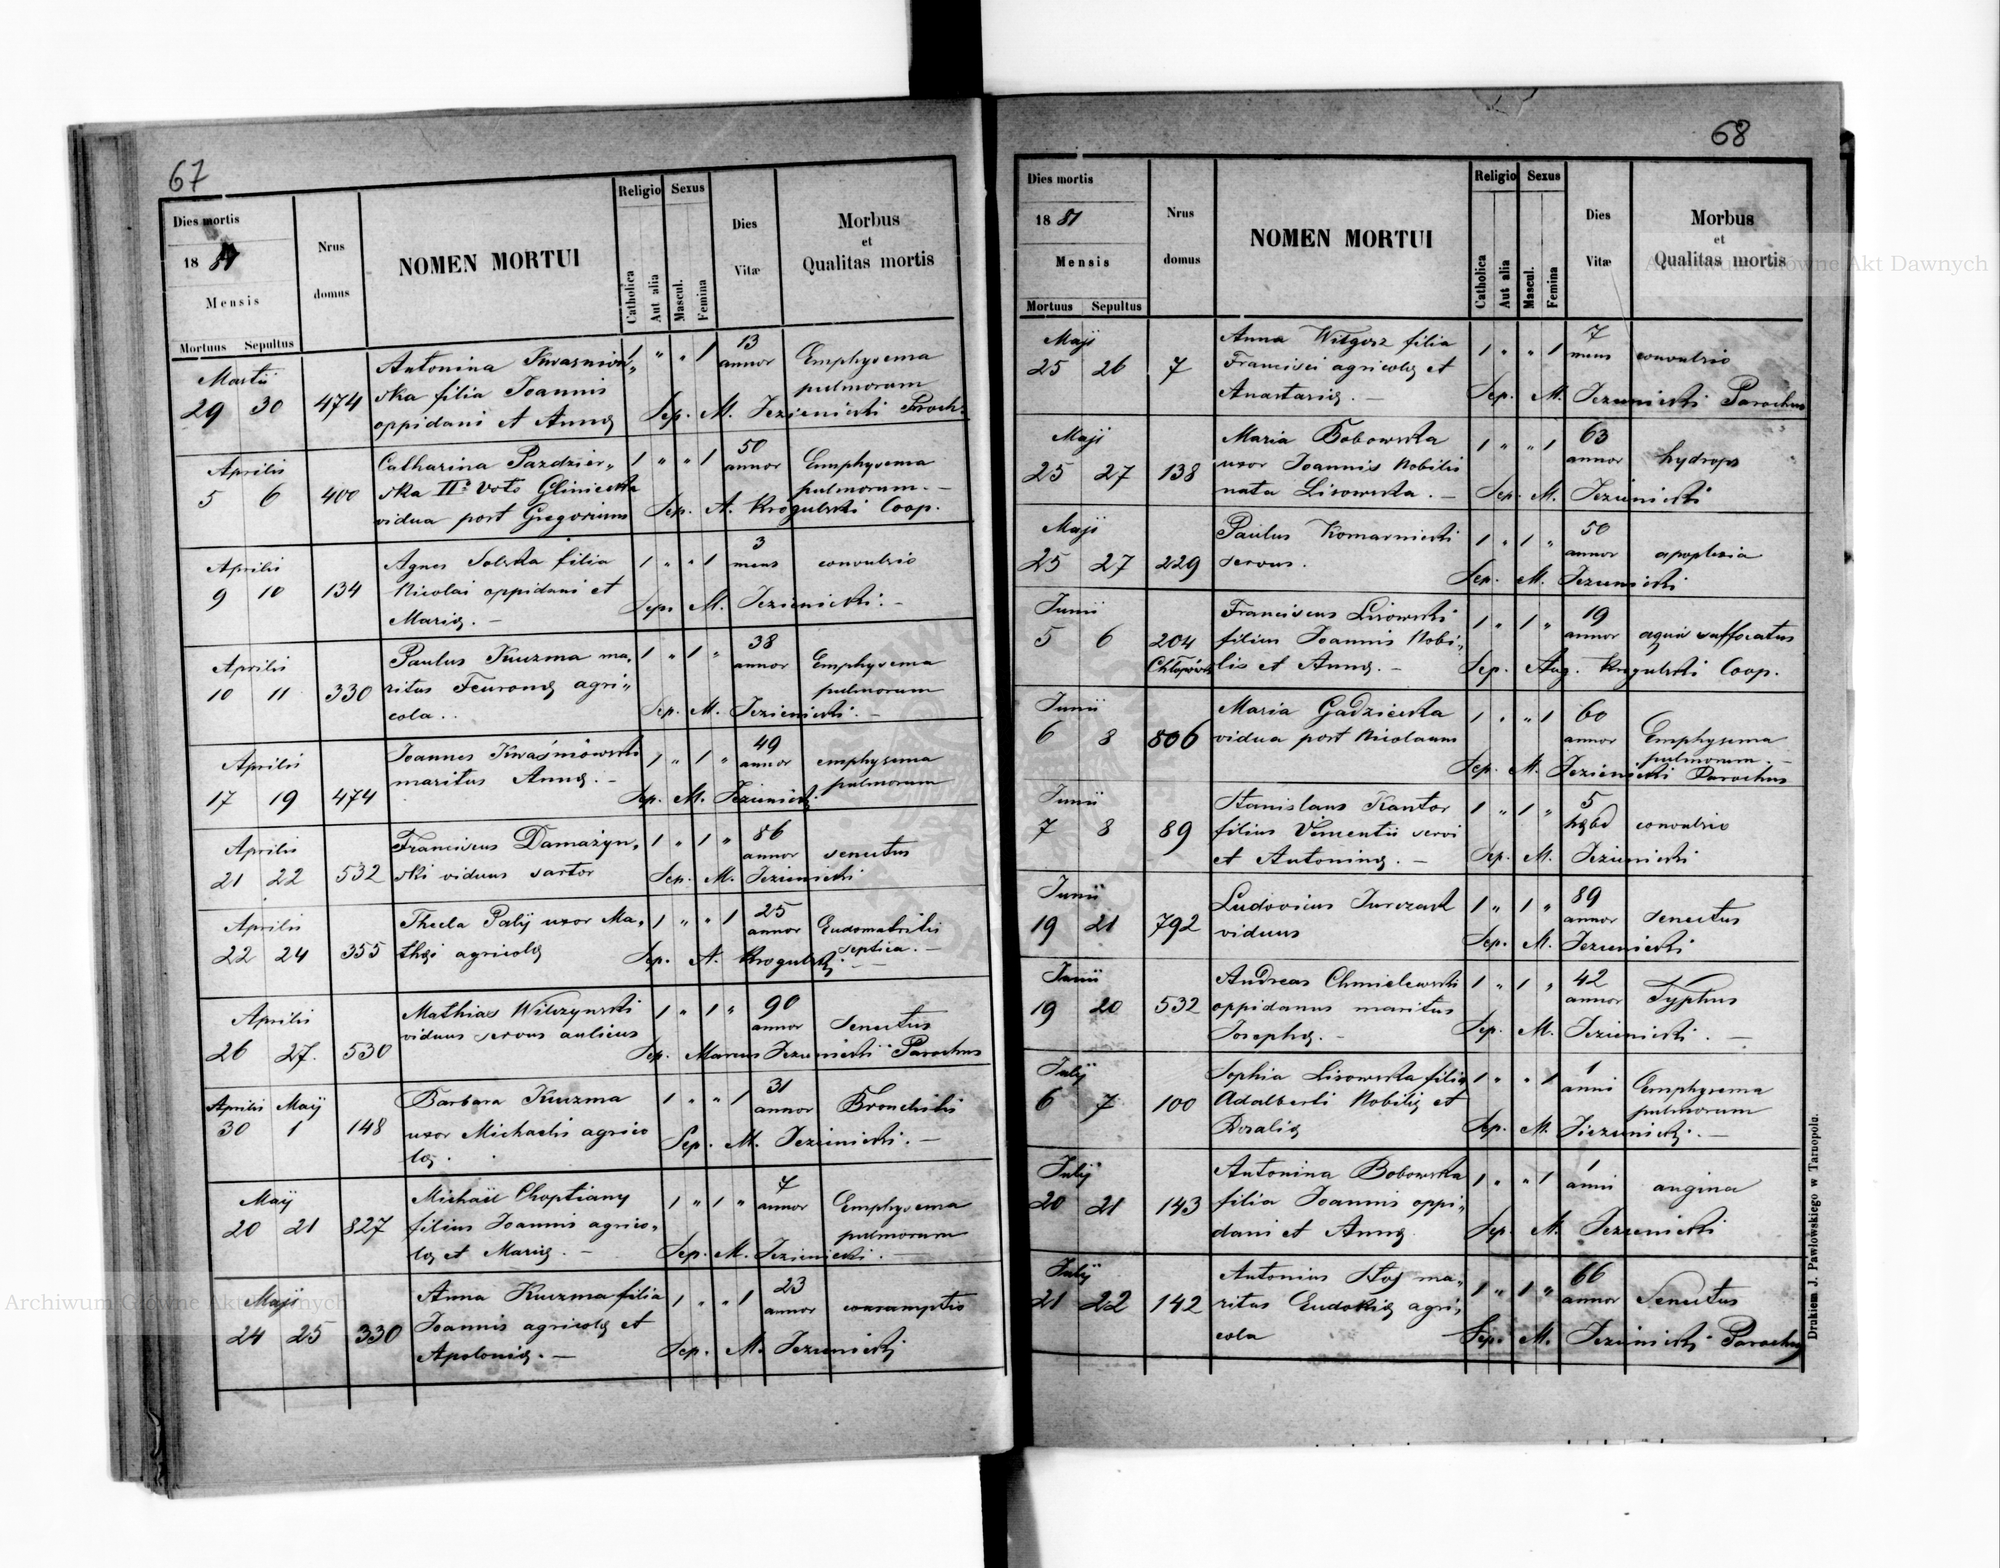 67
Dies mortis
1881
Mensis
Mortuus Sepultus
Nrus
domus
NOMEN MORTUI
Religio
Catholica
Aut alia
Sexus
Mascul.
Femina
Dies
Vitæ
Morbus
et
Qualitas mortis
Martii
29 30 474
Antonina Kwasniow„
ska filia Joannis
oppidani et Annæ
1 „ „ 1
13
annor
Emphysema
pulmorum
Sep. M. Jezienicki Paroch.
Aprilis
5 6 400
Catharina Pazdzier„
ska II° voto Glinicka
vidua post Gregorium
1 „ „ 1
50
annor
Emphysema
pulmorum. —
Sep. A. Krogulski Coop.
Aprilis
9 10 134
Agnes Solska filia
Nicolai oppidani et
Mariæ. —
1 „ „ 1
3
mens
convulsio
Sep. M. Jezienicki. —
Aprilis
10 11 330
Paulus Kuczma ma„
ritus Feuronæ agri„
cola..
1 „ 1 „
38
annor
Emphysema
pulmorum
Sep. M. Jezienicki. —
Aprilis
17 19 474
Joannes Kwaśniowski
maritus Annæ. —
1 „ 1 „
49
annor
emphysema
pulmorum
Sep. M. Jezienicki
Aprilis
21 22 532
Franciscus Damazyn„
ski viduus sartor
1 „ 1 „
86
annor
senectus
Sep. M. Jezienicki
Aprilis
22 24 355
Thecla Palij uxor Ma„
thæi agricolæ
1 „ „ 1
25
annor
Endometritis
septica. —
Sep. A. Krogulski
Aprilis
26 27. 530
Mathias Wilczynski
viduus servus aulicus
1 „ 1 „
90
annor
Senectus
Sep. Marcus Jezienicki Parochus
Aprilis Maij
30 1 148
Barbara Kuczma
uxor Michaelis agrico
læ.
1 „ „ 1
31
annor
Bronchitis
Sep. M. Jezienicki. —
Maij
20 21 827
Michaël Choptiany
filius Joannis agrico„
læ et Mariæ. —
1 „ 1 „
7
annor
Emphysema
pulmorum
Sep. M. Jezienicki. —
Maji
24 25 330
Anna Kuczma filia
Joannis agricolæ et
Apoloniæ. —
1 „ „ 1
23
annor
consumptio
Sep. M. Jezienicki
68
Dies mortis
1881
Mensis
Mortuus Sepultus
Nrus
domus
NOMEN MORTUI
Religio
Catholica
Aut alia
Sexus
Mascul.
Femina
Dies
Vitæ
Morbus
et
Qualitas mortis
Maji
25 26 7
Anna Witgorz filia
Francisci agricolæ et
Anastasiæ. —
1 „ „ 1
7
mens
convulsio
Sep. M. Jezienicki Parochus
Maji
25 27 138
Maria Bobowska
uxor Joannis Nobilis
nata Lisowska. —
1 „ „ 1
63
annor
hydrops
Sep. M. Jezienicki
Maji
25 27 229
Paulus Komarnicki
servus.
1 „ 1 „
50
annor
apoplexia
Sep. M. Jezienicki
Junii
5 6 204
Franciscus Lisowski
filius Joannis Nobi„
lis et Annæ. —
1 „ 1 „
19
annor
aquis suffocatus
Sep. Aug. Krogulski Coop.
Junii
6 8 806
Maria Gadzicka
vidua post Nicolaum
1 „ „ 1
60
annor
Emphysema
pulmorum. —
Sep. M. Jezienicki Parochus
Junii
7 8 89
Stanislaus Kantor
filius Vincentii servi
et Antoninæ. —
1 „ 1 „
5
hebd
convulsio
Sep. M. Jezienicki
Junii
19 21 792
Ludovicus Jurczak
viduus
1 „ 1 „
89
annor
senectus
Sep. M. Jezienicki
Junii
19 20 532
Andreas Chmielewski
oppidanus maritus
Josephæ. —
1 „ 1 „
42
annor
Typhus
Sep. M. Jezienicki. —
Julij
6 7 100
Sophia Lisowska filia
Adalberti Nobilis et
Rozaliæ
1 „ „ 1
1
anni
Emphysema
pulmorum
Sep. M. Jezienicki. —
Julij
20 21 143
Antonina Bobowska
filia Joannis oppi„
dani et Annæ.
1 „ „ 1
1
anni
angina
Sep. M. Jezienicki
Julij
21 22 142
Antonius Stoj ma„
ritus Eudokiæ agri„
cola
1 „ 1 „
66
annor
Senectus
Sep. M. Jezienicki Parochus
Drukiem J. Pawłowskiego w Tarnopolu.
Archiwum Główne Akt Dawnych
Archiwum Główne Akt Dawnych